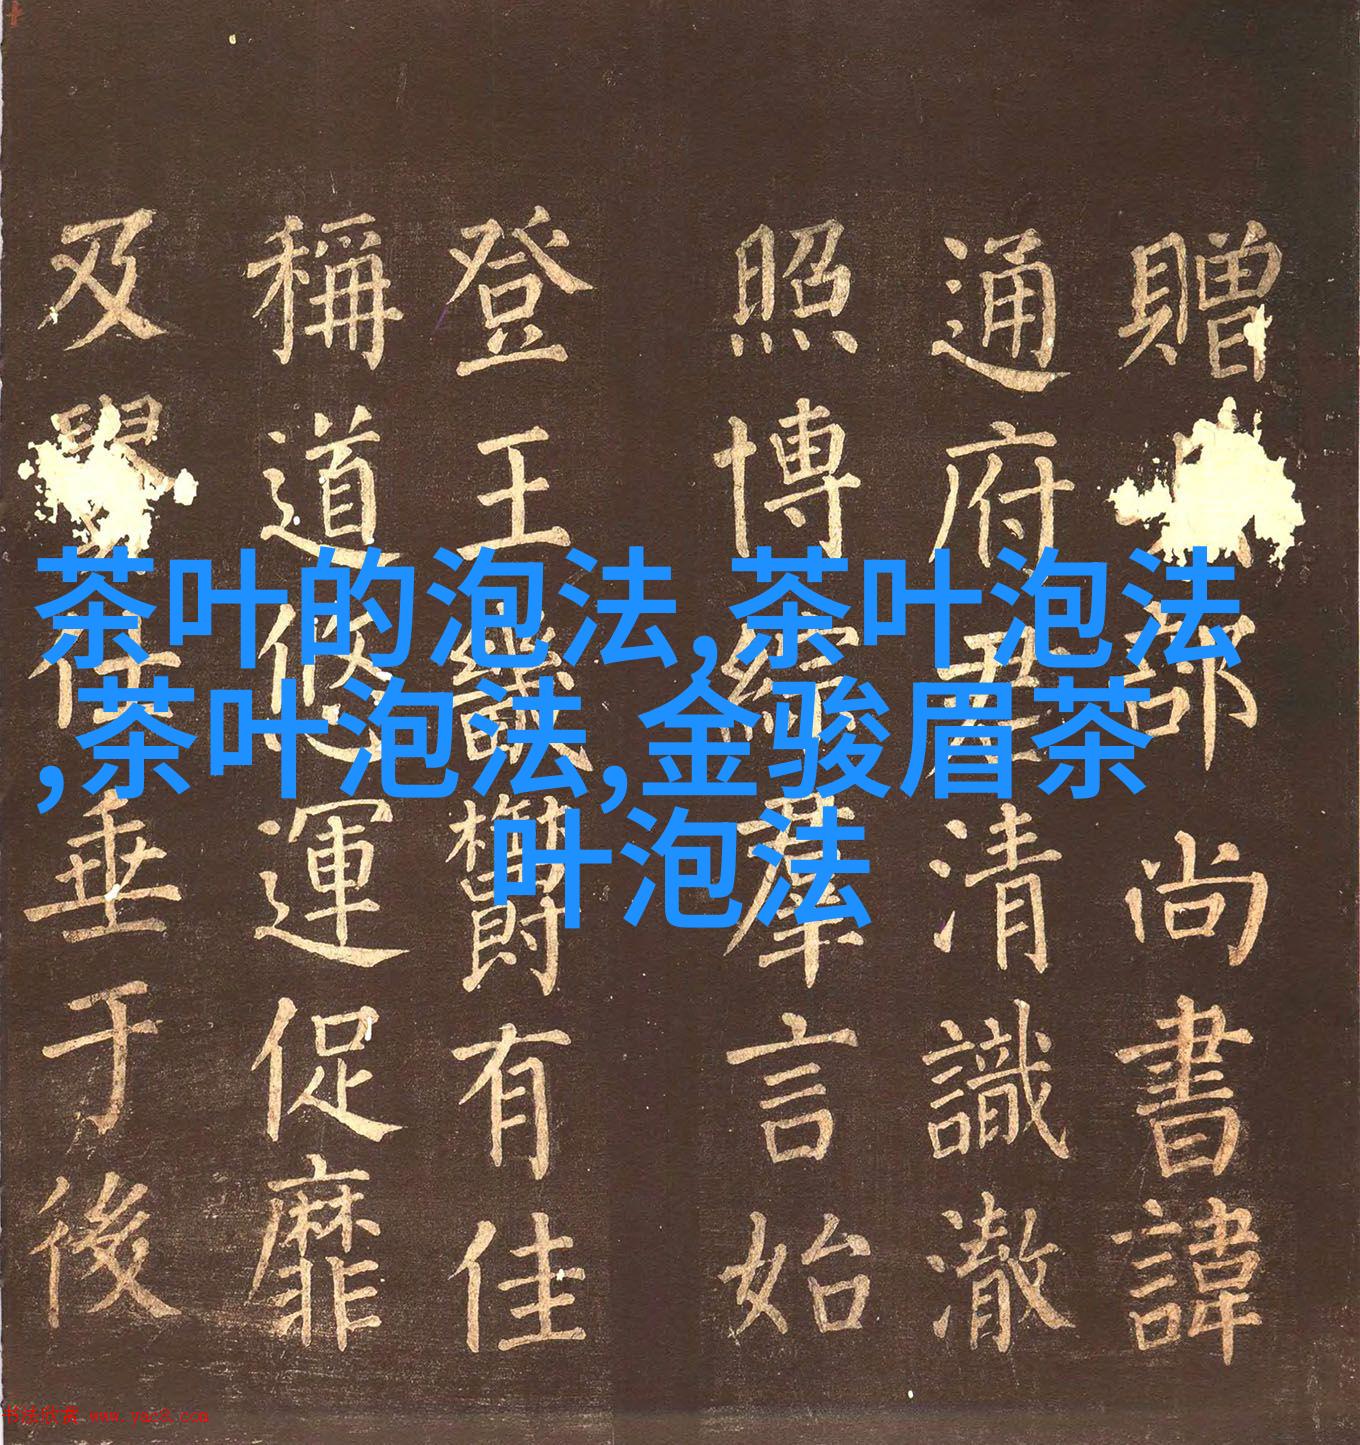 贈部尚書諱
通府君清識澈
照博綜羣言始
登王畿欝有佳
稱道悠運促靡
及垂于後
茶叶的泡法,茶叶泡法
,茶叶泡法,金骏眉茶
叶泡法
书法欣赏 www.yac8.com